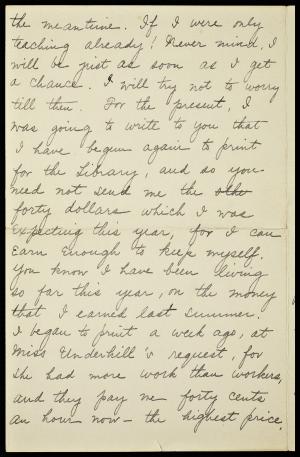 the meantime. If I were only
teaching already! Never mind, I
will be just as soon as I get
a chance. I will try not to worry
till then. For the present, I
was going to write to you that
I have begun again to print
for the Library, and so you
need not send me the othe
forty dollars which I was
expecting this year, for I can
earn enough to keep myself.
You know I have been living
so far this year, on the money
that I earned last summer.
I began to print a week ago, at
Miss Underhill's request, for
she had more work than workers,
and they pay me forty cents
an hour now — the highest price.